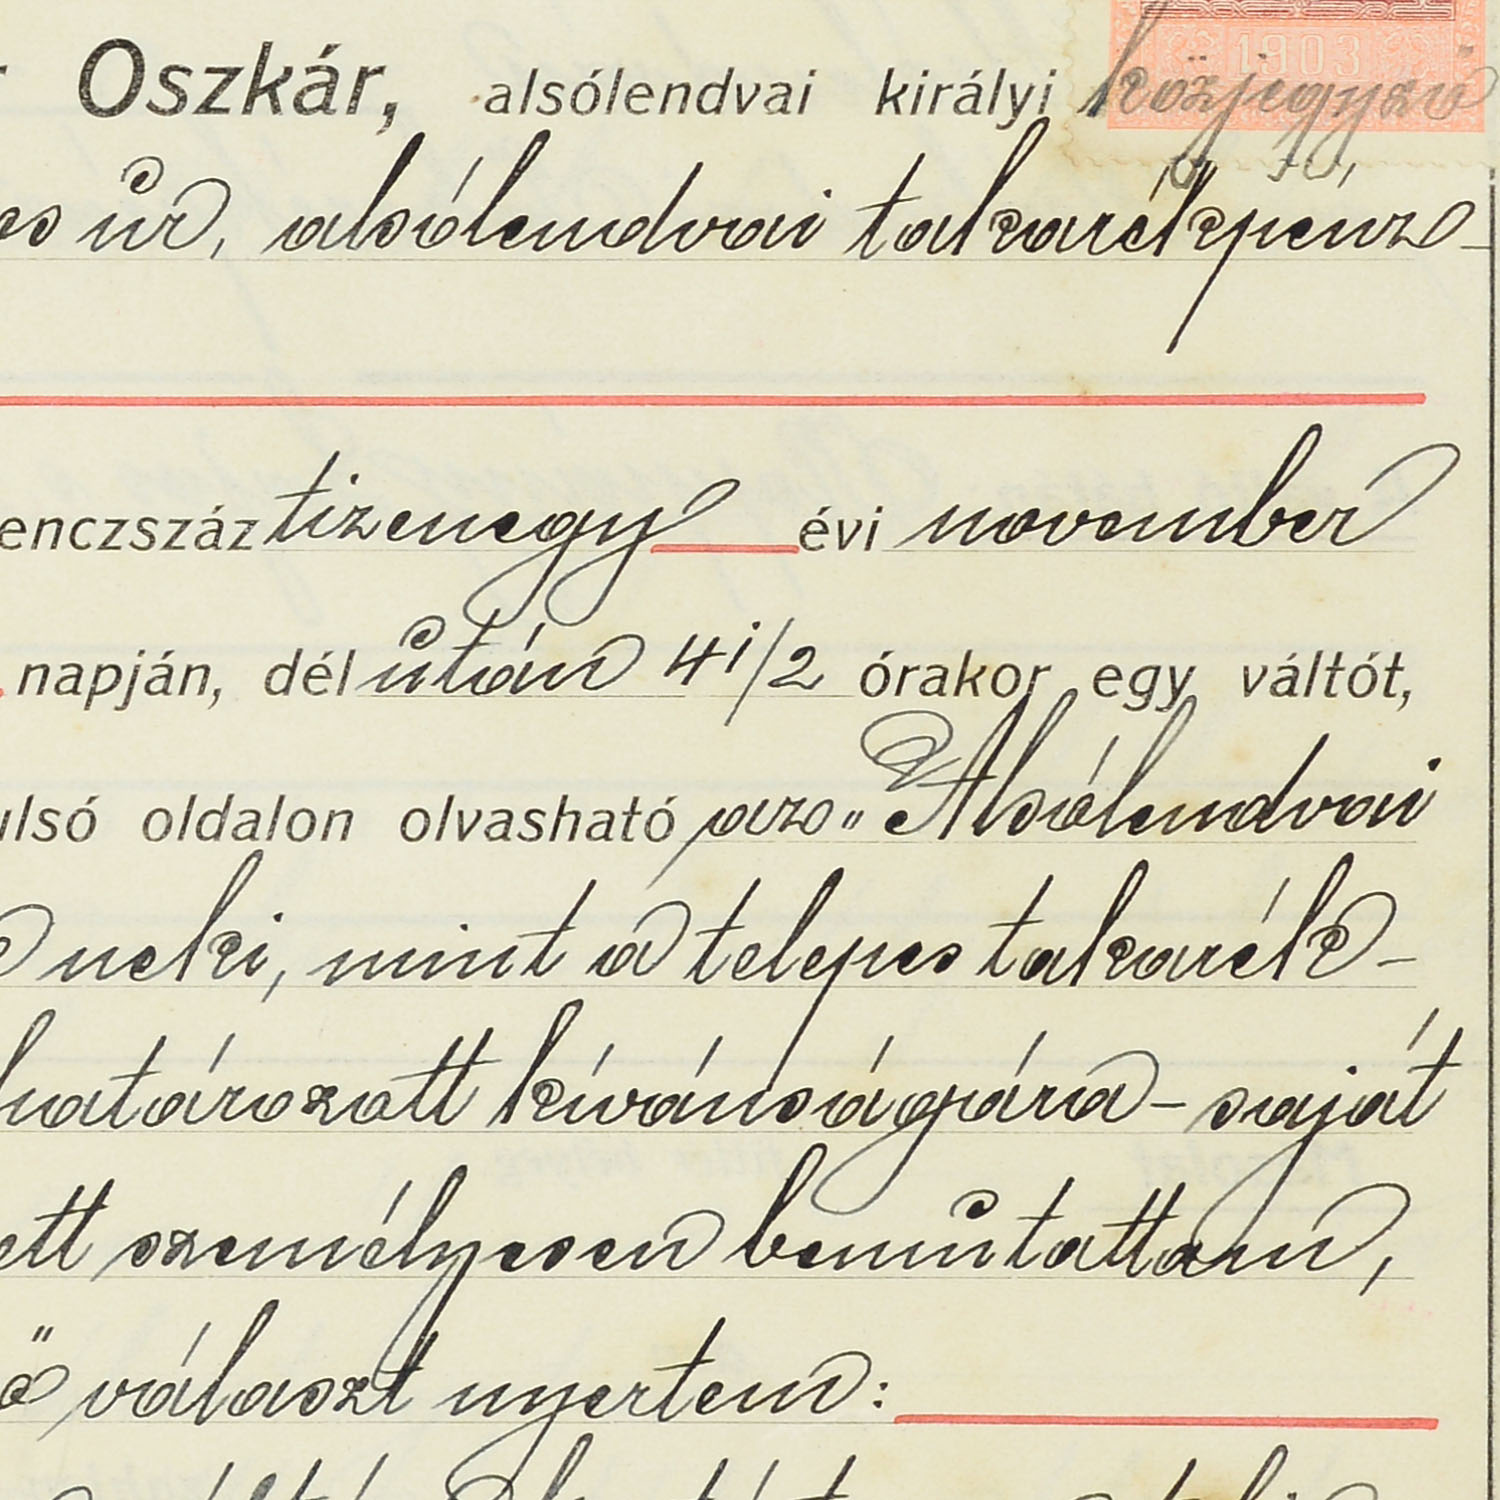 Oszkár, alsólendvai királyi közjegyző
1903
es úr, alsólendvai takarékpénz-
enczszáz tizenegy évi november
napján, dél után 4 1/2 órakor egy váltót,
ulsó oldalon olvasható az „Alsólendvai
neki, mint a telepes takarék-
határozott kívánságára - saját
ett személyesen bemutattam,
ő választ nyertem: